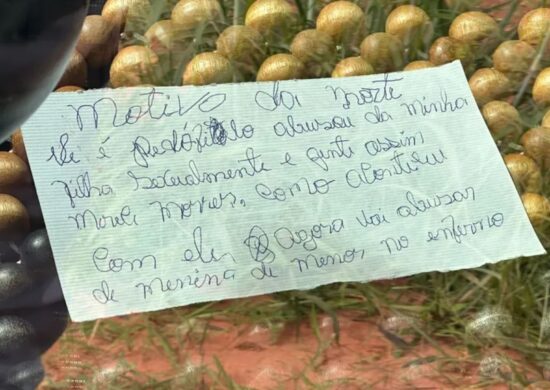 Motivo da morte
ele é Pedófilo abusou da minha
filha Sexualmente e gente assim
Merece Morrer, como aconteceu
com ele, Agora vai abusar
de menina de menor no enferno